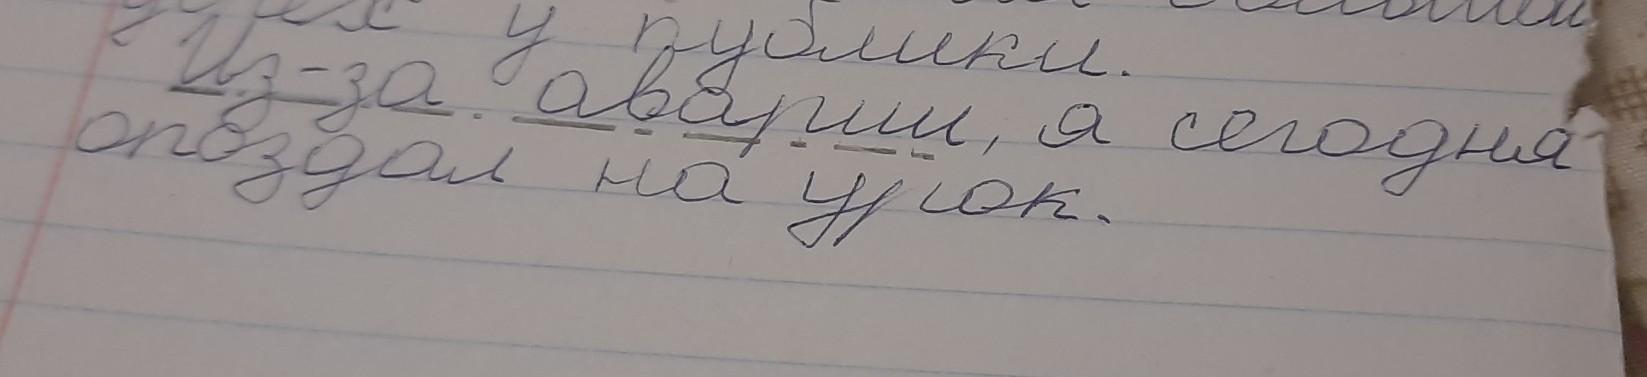 у публики.
Из-за аварии, я сегодня
опоздал на урок.